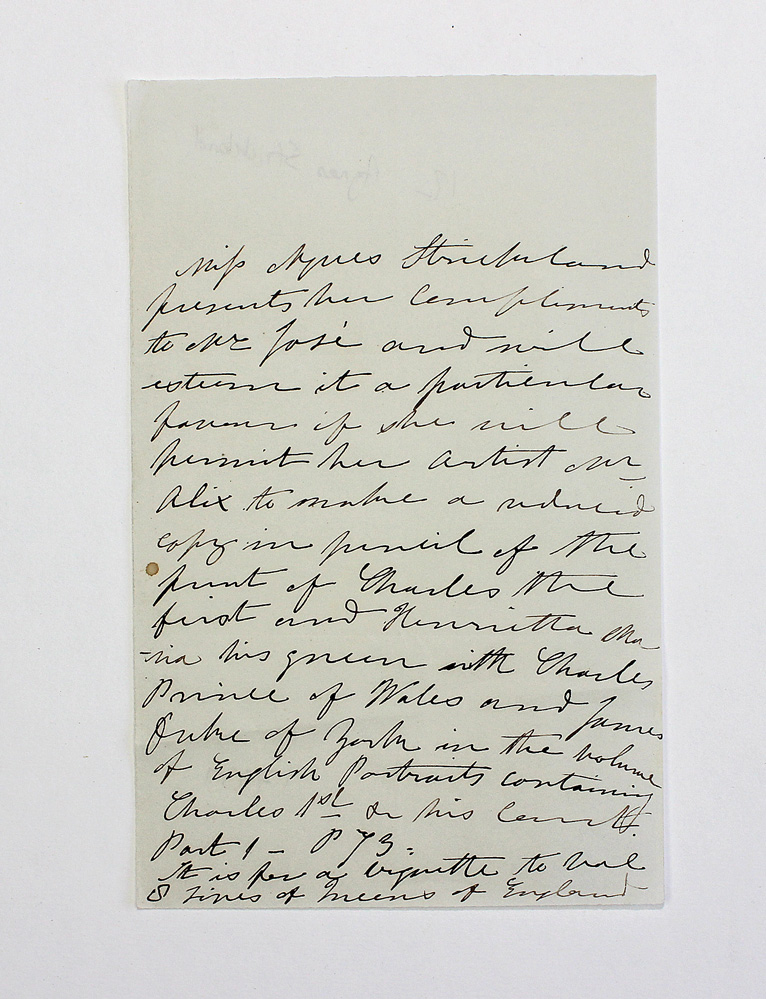 Miss Agnes Strickland
presents her compliments
to Mr José and will
esteem it a particular
favour if she will
permit her artist Mr
Alix to make a reduced
copy in pencil of the
print of Charles the
first and Henrietta Ma
-ria his queen with Charles
Prince of Wales and James
Duke of York in the volume
of English Portraits containing
Charles 1st & his Court
Part 1 - P 73.
It is for a vignette to Vol
8 Lives of Queens of England